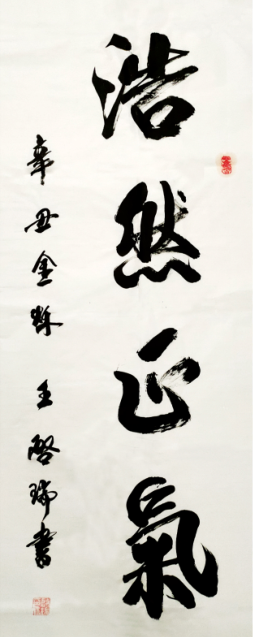 浩然正氣
辛丑金秋 王啓瑞書